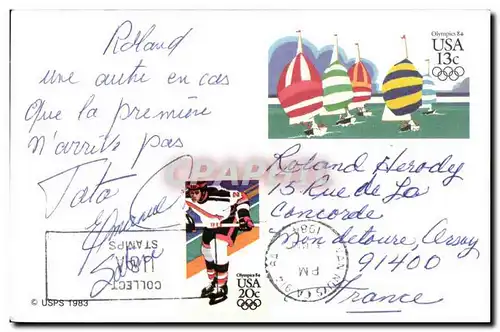 Rolland
une autre en cas
que la première
n'arrive pas
Tata
Olympics 84
USA
13c
Roland Herody
15 Rue de La
Concorde
91400
France
Olympics 84
USA
20c
PM
1984
COLLECT
USA
STAMPS
© USPS 1983